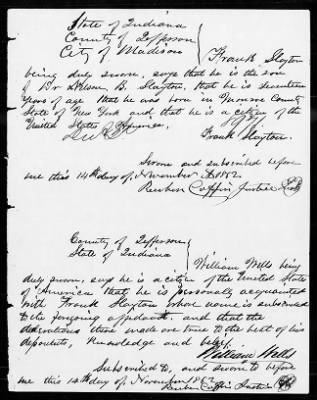 State of Indiana
County of Jefferson
City of Madison
Frank Slayton
being duly sworn, says that he is the son
of Dr Willson B. Slayton, that he is seventeen
years of age that he was born in Monroe County
State of New York and that he is a citizen of the
United States
Frank Slayton.
Sworn and subscribed before
me this 14th day of November 1862
Reuben Coffin Justice
County of Jefferson
State of Indiana
William Wells being
duly sworn, says he is a citizen of the United State
of America that he is personally acquainted
with Frank Slayton whose name is subscribed
to the foregoing affidavit. and that the
declarations then made are true to the best of his
deponents, knowledge and belief.
William Wells
Subscribed to, and sworn to before
me this 14th day of November
Reuben Coffin Justice